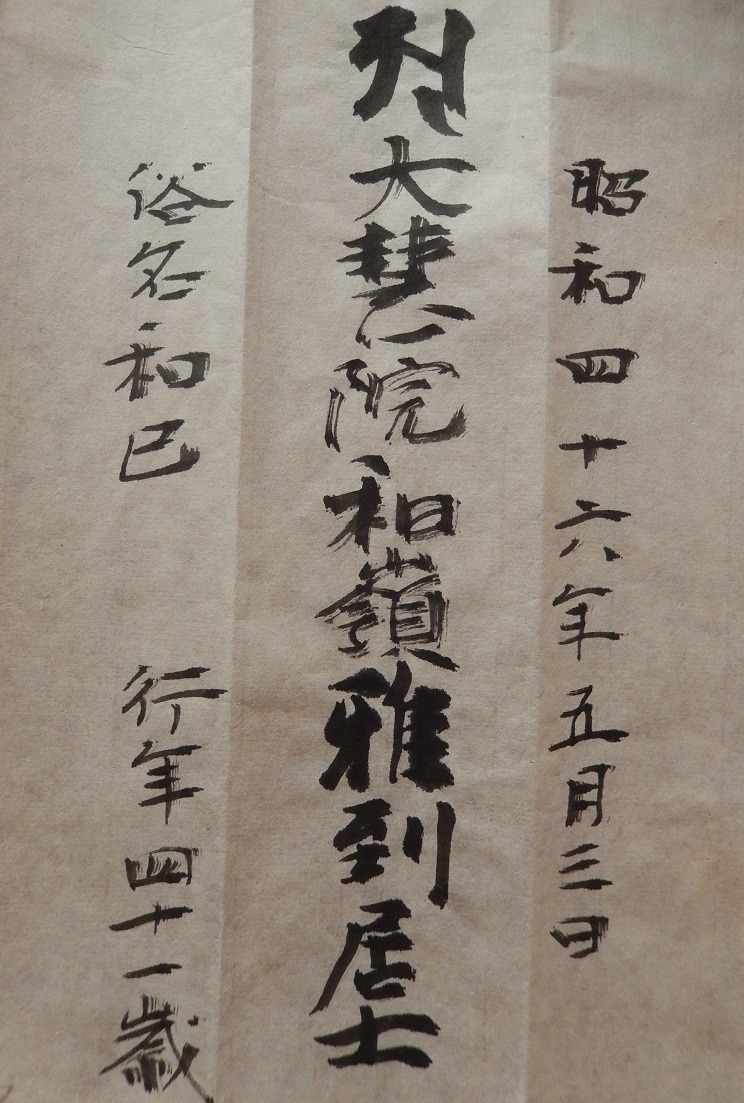 昭和四十六年五月三日
大慧院和嶺雅到居士
俗名和巳 行年四十一歳